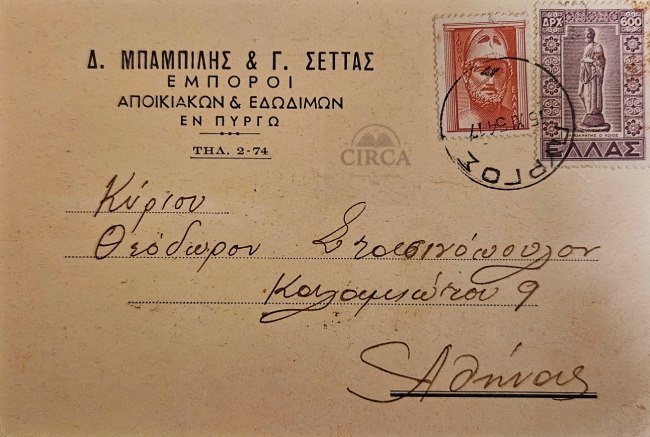 Δ. ΜΠΑΜΠΙΛΗΣ & Γ. ΣΕΤΤΑΣ
ΕΜΠΟΡΟΙ
ΑΠΟΙΚΙΑΚΩΝ & ΕΔΩΔΙΜΩΝ
ΕΝ ΠΥΡΓΩ
ΤΗΛ. 2-74
ΔΡΧ 600
ΕΛΛΑΣ
ΠΥΡΓΟΣ
CIRCA
Κύριον
Θεόδωρον Στασινόπουλον
Καλαμιώτου 9
Αθήνας